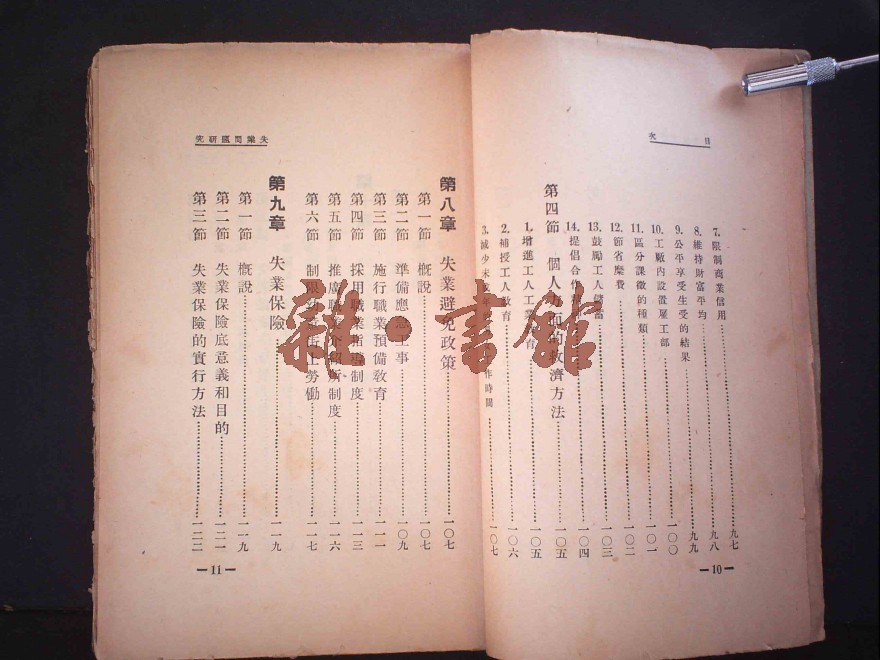 目次
7. 限制商業信用……九七
8. 維持財富平均……九八
9. 公平享受生受的結果……九九
10. 工廠內設置雇工部……一〇〇
11. 區分課徵的種類……一〇一
12. 節省糜費……一〇二
13. 鼓勵工人儲蓄……一〇三
14. 提倡合作……一〇四
第四節 個人方面的救濟方法……一〇五
1. 增進工人工業育……一〇五
2. 補授工人教育……一〇六
3. 減少未成年作時間……一〇七
—10—
失業問題研究
第八章 失業避免政策……一〇七
第一節 概說……一〇七
第二節 準備應急工事……一〇九
第三節 施行職業預備敎育……一一一
第四節 採用職業指導制度……一一三
第五節 推廣職業介紹所制度……一一六
第六節 制限勞働……一一七
第九章 失業保險……一一九
第一節 概說……一一九
第二節 失業保險底意義和目的……一二一
第三節 失業保險的實行方法……一二二
—11—
雜·書館